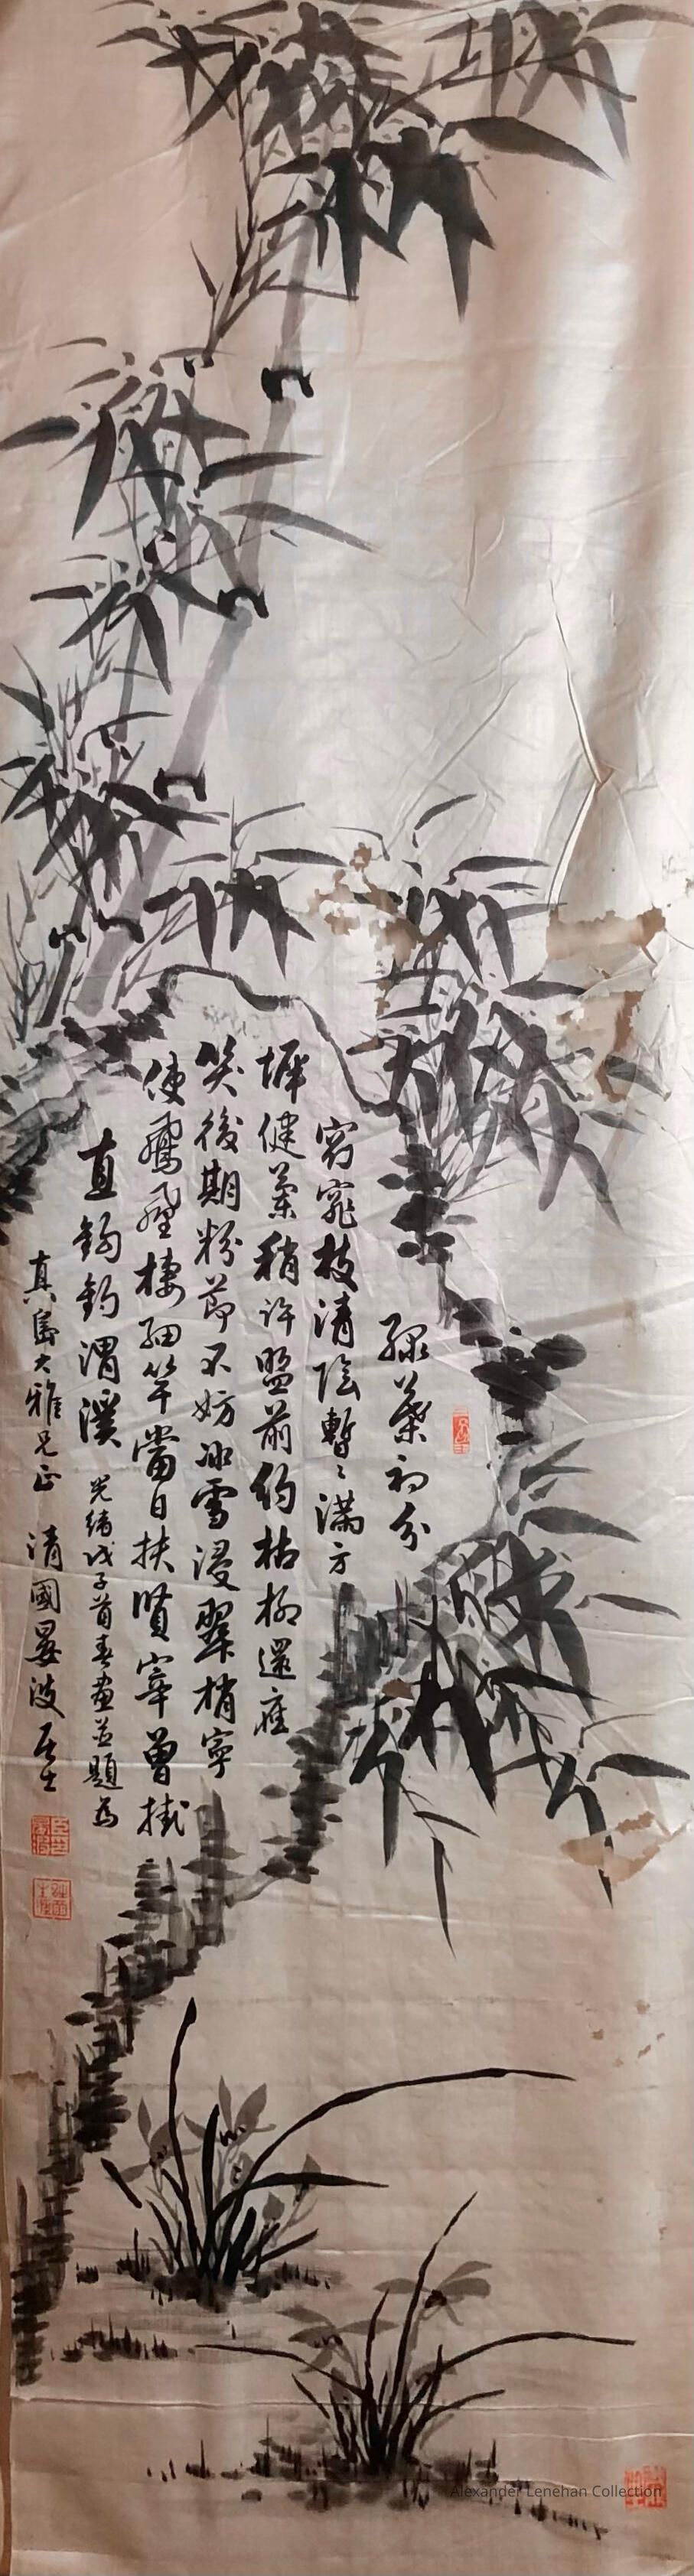 綠葉初分
窈窕枝清陰暫、滿方
塀健葉稍許盟前約枯柳還應
笑後期粉節不妨冰雪浸翠梢寧
使鳳凰棲細竿當日扶賢宰曾掛
直鉤釣渭溪 光緒戊子首春畫並題為
真島大雅兄正 清國晏波居士
Alexander Lenehan Collection